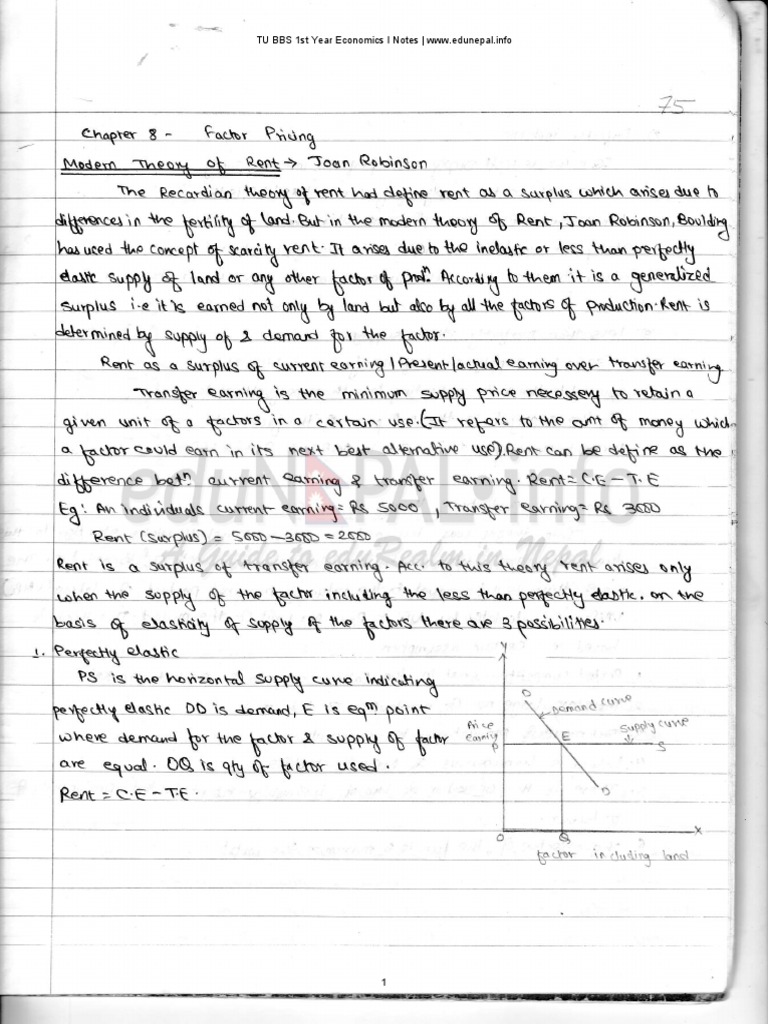 TU BBS 1st Year Economics I Notes | www.edunepal.info
75
Chapter 8 - Factor Pricing
Modern Theory of Rent → Joan Robinson
The Recardian theory of rent had define rent as a surplus which arises due to
differences in the fertility of land. But in the modern theory of Rent, Joan Robinson, Boulding
has used the concept of scarcity rent. It arises due to the inelastic or less than perfectly
elastic supply of land or any other factor of prodⁿ. According to them it is a generalized
surplus i.e it is earned not only by land but also by all the factors of production. Rent is
determined by supply of & demand for the factor.
Rent as a surplus of current earning / Present/actual earning over transfer earning
Transfer earning is the minimum supply price necessery to retain a
given unit of a factors in a certain use. (It refars to the amt of money which
a factor could earn in its next best alternative use). Rent can be define as the
difference betⁿ current earning & transfer earning. Rent = C.E - T.E
Eg: An individuals current earning = Rs 5000, Transfer earning = Rs 3000
Rent (surplus) = 5000 - 3000 = 2000
Rent is a surplus of transfer earning. Acc. to this theory rent arises only
when the supply of the factor including the less than perfectly elastic. on the
basis of elasticity of supply of the factors there are 3 possibilities.
1. Perfectly elastic
PS is the horizontal supply curve indicating
perfectly elastic DD is demand, E is eqᵐ point
where demand for the factor & supply of factor
are equal. OQ is qty of factor used.
Rent = C.E - T.E.
Y
D
Demand curve
Price
earning
P
E
supply curve
S
D
O
Q
X
factor including land
eduNEPAL.info
A Guide to eduRealm in Nepal
1